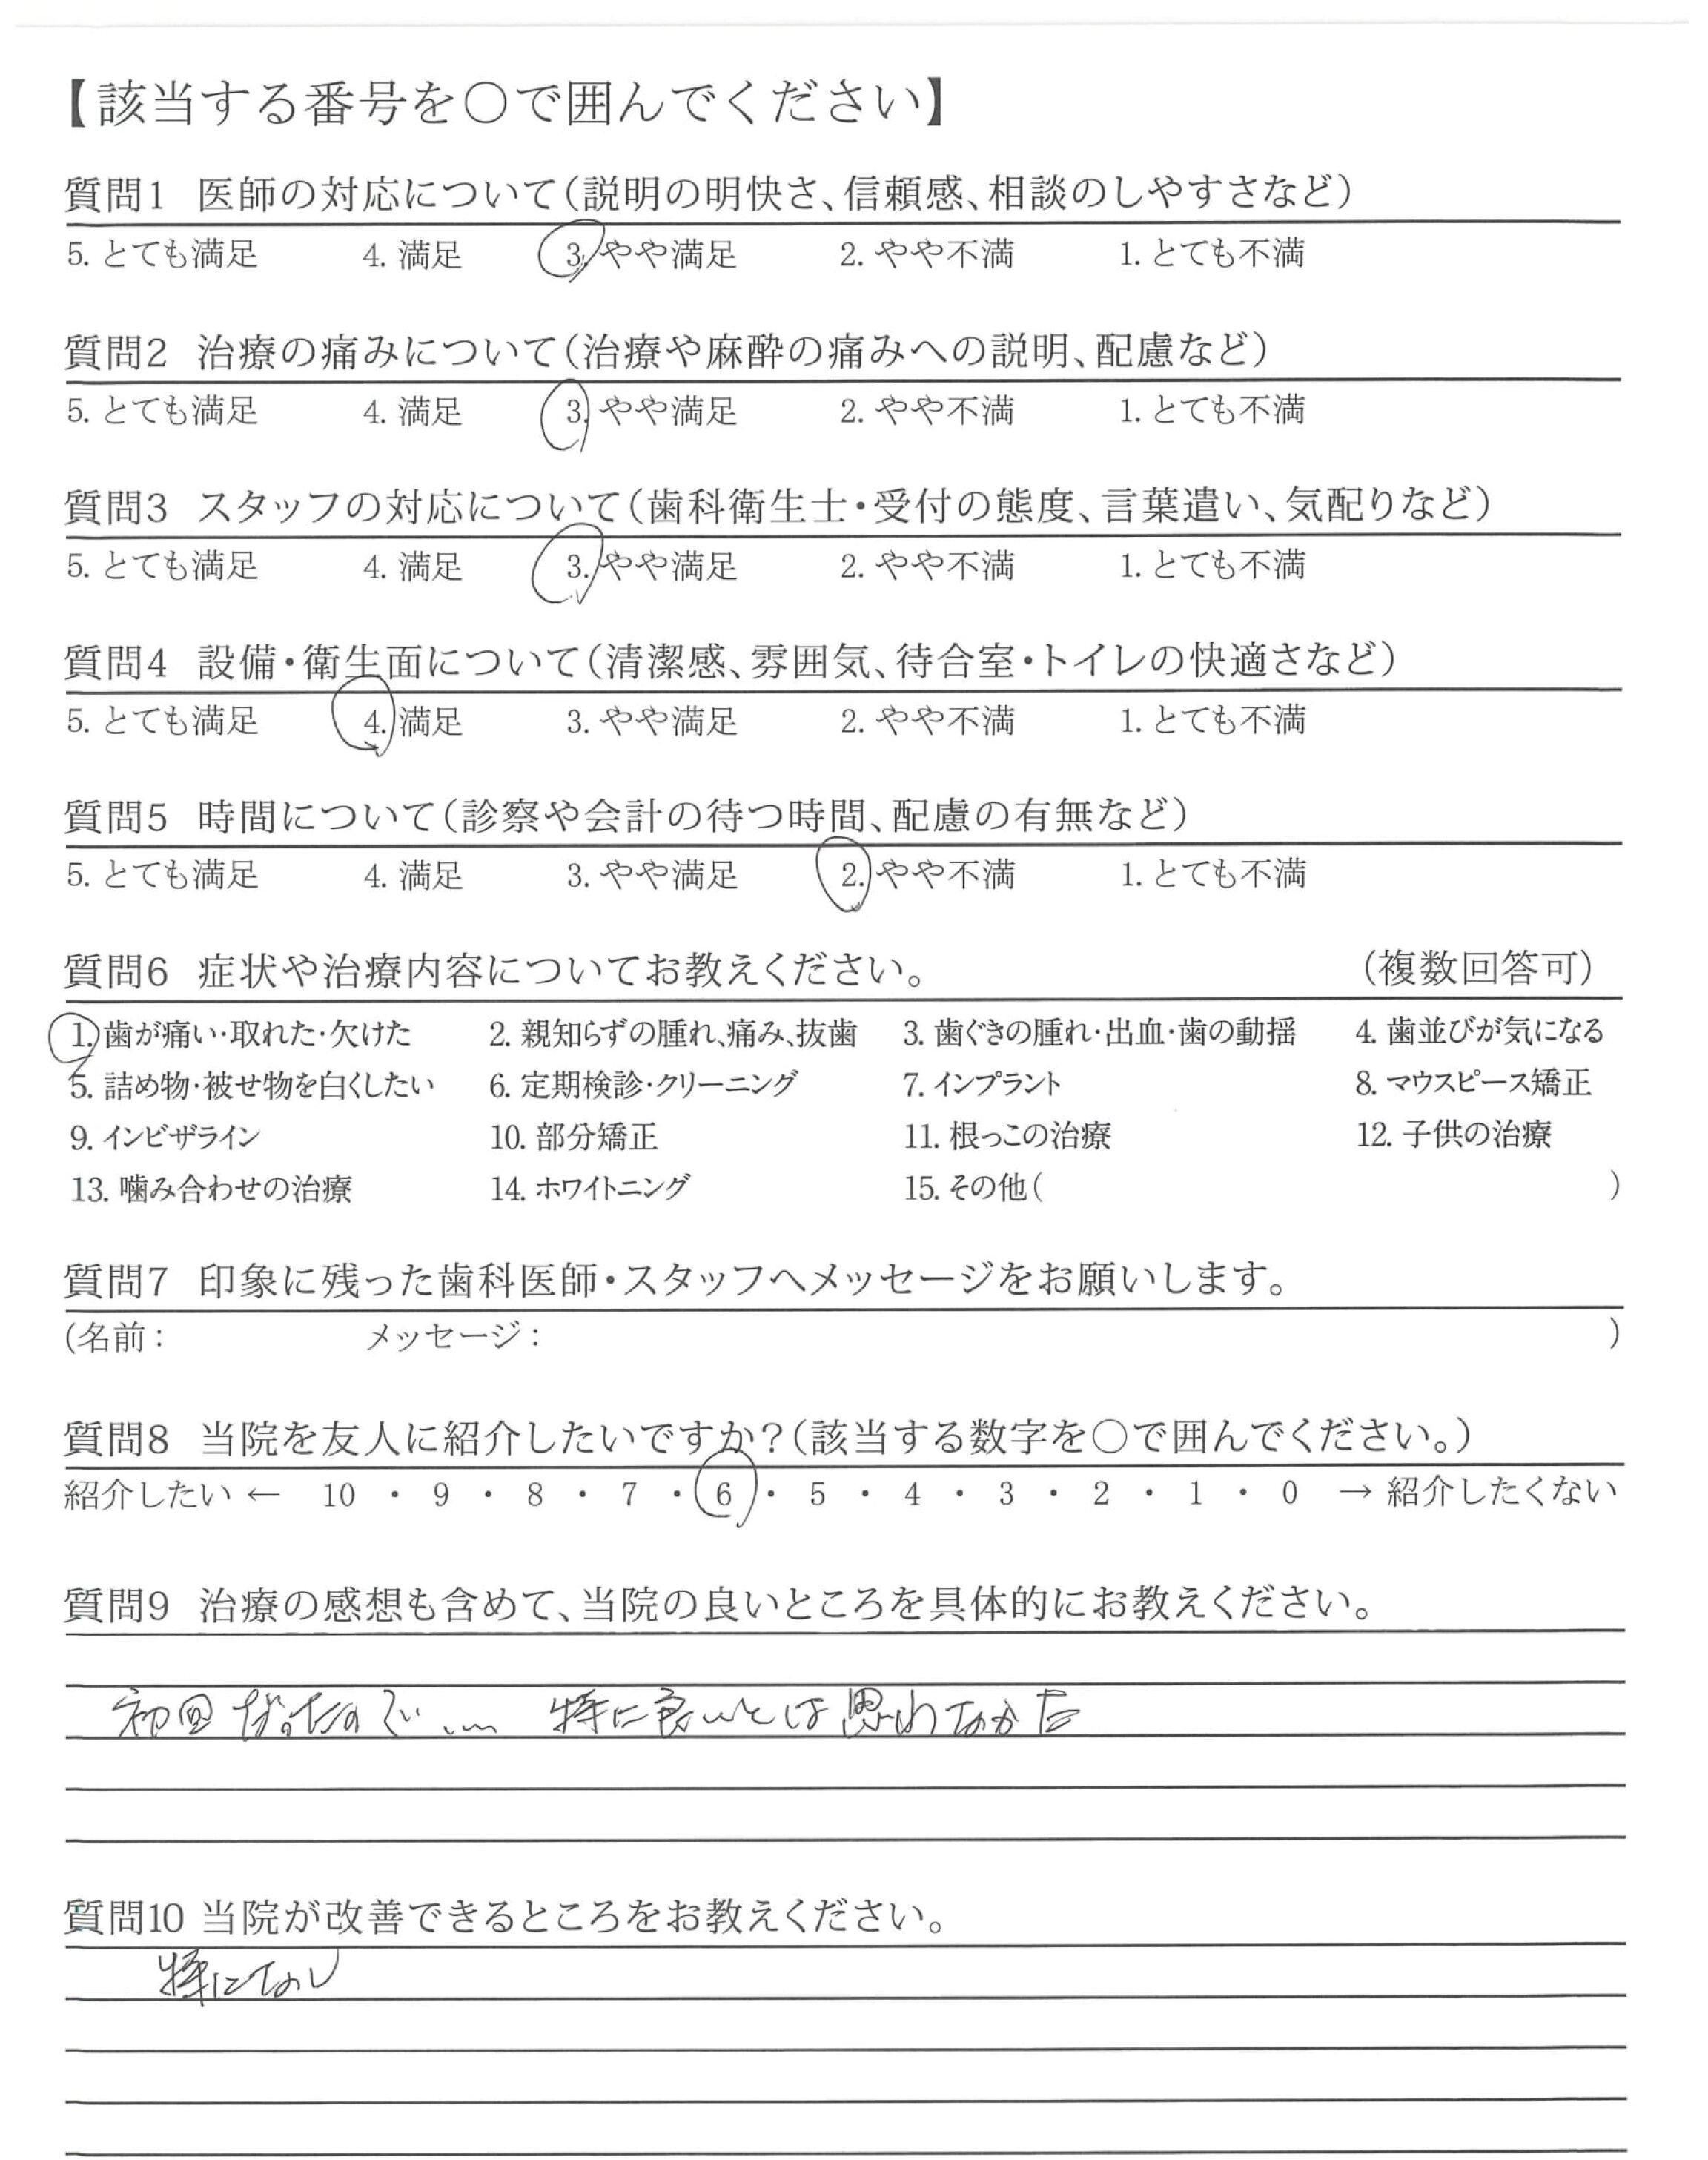 【該当する番号を○で囲んでください】
質問1 医師の対応について(説明の明快さ、信頼感、相談のしやすさなど)
5. とても満足 4. 満足 3. やや満足 2. やや不満 1. とても不満
質問2 治療の痛みについて(治療や麻酔の痛みへの説明、配慮など)
5. とても満足 4. 満足 3. やや満足 2. やや不満 1. とても不満
質問3 スタッフの対応について(歯科衛生士・受付の態度、言葉遣い、気配りなど)
5. とても満足 4. 満足 3. やや満足 2. やや不満 1. とても不満
質問4 設備・衛生面について(清潔感、雰囲気、待合室・トイレの快適さなど)
5. とても満足 4. 満足 3. やや満足 2. やや不満 1. とても不満
質問5 時間について(診察や会計の待つ時間、配慮の有無など)
5. とても満足 4. 満足 3. やや満足 2. やや不満 1. とても不満
質問6 症状や治療内容についてお教えください。 (複数回答可)
1. 歯が痛い・取れた・欠けた 2. 親知らずの腫れ、痛み、抜歯 3. 歯ぐきの腫れ・出血・歯の動揺 4. 歯並びが気になる
5. 詰め物・被せ物を白くしたい 6. 定期検診・クリーニング 7. インプラント 8. マウスピース矯正
9. インビザライン 10. 部分矯正 11. 根っこの治療 12. 子供の治療
13. 噛み合わせの治療 14. ホワイトニング 15. その他( )
質問7 印象に残った歯科医師・スタッフへメッセージをお願いします。
(名前: メッセージ: )
質問8 当院を友人に紹介したいですか?(該当する数字を○で囲んでください。)
紹介したい ← 10 ・ 9 ・ 8 ・ 7 ・ 6 ・ 5 ・ 4 ・ 3 ・ 2 ・ 1 ・ 0 → 紹介したくない
質問9 治療の感想も含めて、当院の良いところを具体的にお教えください。
初回だったので…. 特に良いとは思わなかった
質問10 当院が改善できるところをお教えください。
特になし